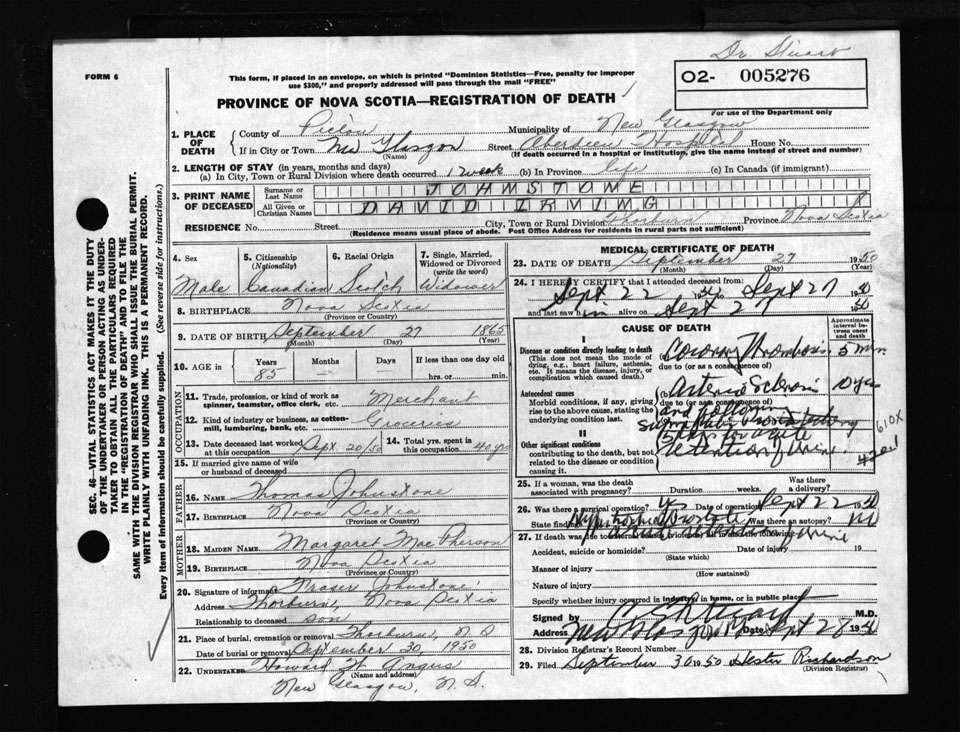 Dr. Stuart
FORM 6
This form, if placed in an envelope, on which is printed "Dominion Statistics—Free, penalty for improper
use $300," and properly addressed will pass through the mail "FREE"
02- 005276
PROVINCE OF NOVA SCOTIA—REGISTRATION OF DEATH
For use of the Department only
1. PLACE OF DEATH
County of Pictou Municipality of New Glasgow
If in City or Town New Glasgow Street Aberdeen Hospital House No.
(Name) (If death occurred in a hospital or institution, give the name instead of street and number)
2. LENGTH OF STAY (in years, months and days)
(a) In City, Town or Rural Division where death occurred 1 week (b) In Province life (c) In Canada (if immigrant)
3. PRINT NAME OF DECEASED
Surname or Last Name JOHNSTONE
All Given or Christian Names DAVID IRVING
RESIDENCE No. Street City, Town or Rural Division Thorburn Province Nova Scotia
(Residence means usual place of abode. Post Office Address for residents in rural parts not sufficient)
4. Sex
Male
5. Citizenship
(Nationality)
Canadian
6. Racial Origin
Scotch
7. Single, Married, Widowed or Divorced
(write the word)
Widower
8. BIRTHPLACE Nova Scotia
(Province or Country)
9. DATE OF BIRTH September 27 1865
(Month) (Day) (Year)
10. AGE in Years Months Days If less than one day old
85 hrs. or min.
OCCUPATION
11. Trade, profession, or kind of work as spinner, teamster, office clerk, etc. Merchant
12. Kind of industry or business, as cotton-mill, lumbering, bank, etc. Groceries
13. Date deceased last worked at this occupation Sept. 20/50
14. Total yrs. spent in this occupation 40 yrs
15. If married give name of wife or husband of deceased
FATHER
16. Name Thomas Johnstone
17. Birthplace Nova Scotia
MOTHER
18. Maiden Name Margaret MacPherson
19. Birthplace Nova Scotia
(Province or Country)
20. Signature of informant Fraser Johnstone
Address Thorburn, Nova Scotia
Relationship to deceased son
21. Place of burial, cremation or removal Thorburn, N S
Date of burial or removal September 30, 1950
22. Undertaker Howard W. Angus
(Name and address)
New Glasgow, N. S.
MEDICAL CERTIFICATE OF DEATH
23. DATE OF DEATH September 27 1950
(Month) (Day) (Year)
24. I HEREBY CERTIFY that I attended deceased from:
Sept 22 1950 to Sept 27 1950
and last saw him alive on Sept 27 1950
CAUSE OF DEATH
Approximate interval between onset and death
I
Disease or condition directly leading to death
(This does not mean the mode of dying, e.g., heart failure, asthenia, etc. It means the disease, injury, or complication which caused death.)
(a) Coronary Thrombosis 5 min.
due to (or as a consequence of)
Antecedent causes
Morbid conditions, if any, giving rise to the above cause, stating the underlying condition last.
(b) Arterio Sclerosis 10 yrs
due to (or as a consequence of)
and following
Suprapubic
II
Other significant conditions
contributing to the death, but not related to the disease or condition causing it
5 days for acute
retention of urine.
610X
4201
25. If a woman, was the death associated with pregnancy? Duration weeks. Was there a delivery?
26. Was there a surgical operation? yes Date of operation Sept 22 1950
State findings Hypertrophied Prostate Was there an autopsy? No
retention urine
27. If death was due to external causes (violence) fill in the following:
Accident, suicide or homicide? Date of injury 19
(State which)
Manner of injury
(How sustained)
Nature of injury
Specify whether injury occurred in industry, in home, or in public place
Signed by Stuart M.D.
Address New Glasgow Date Sept 28 1950
28. Division Registrar's Record Number
29. Filed September 30 1950 Hester Richardson
(Division Registrar)
SEC. 46—VITAL STATISTICS ACT MAKES IT THE DUTY
OF THE UNDERTAKER OR PERSON ACTING AS UNDER-
TAKER TO OBTAIN ALL THE PARTICULARS REQUIRED
IN THE "REGISTRATION OF DEATH" AND TO FILE THE
SAME WITH THE DIVISION REGISTRAR WHO SHALL ISSUE THE BURIAL PERMIT.
WRITE PLAINLY WITH UNFADING INK. THIS IS A PERMANENT RECORD.
Every item of information should be carefully supplied. (See reverse side for instructions.)